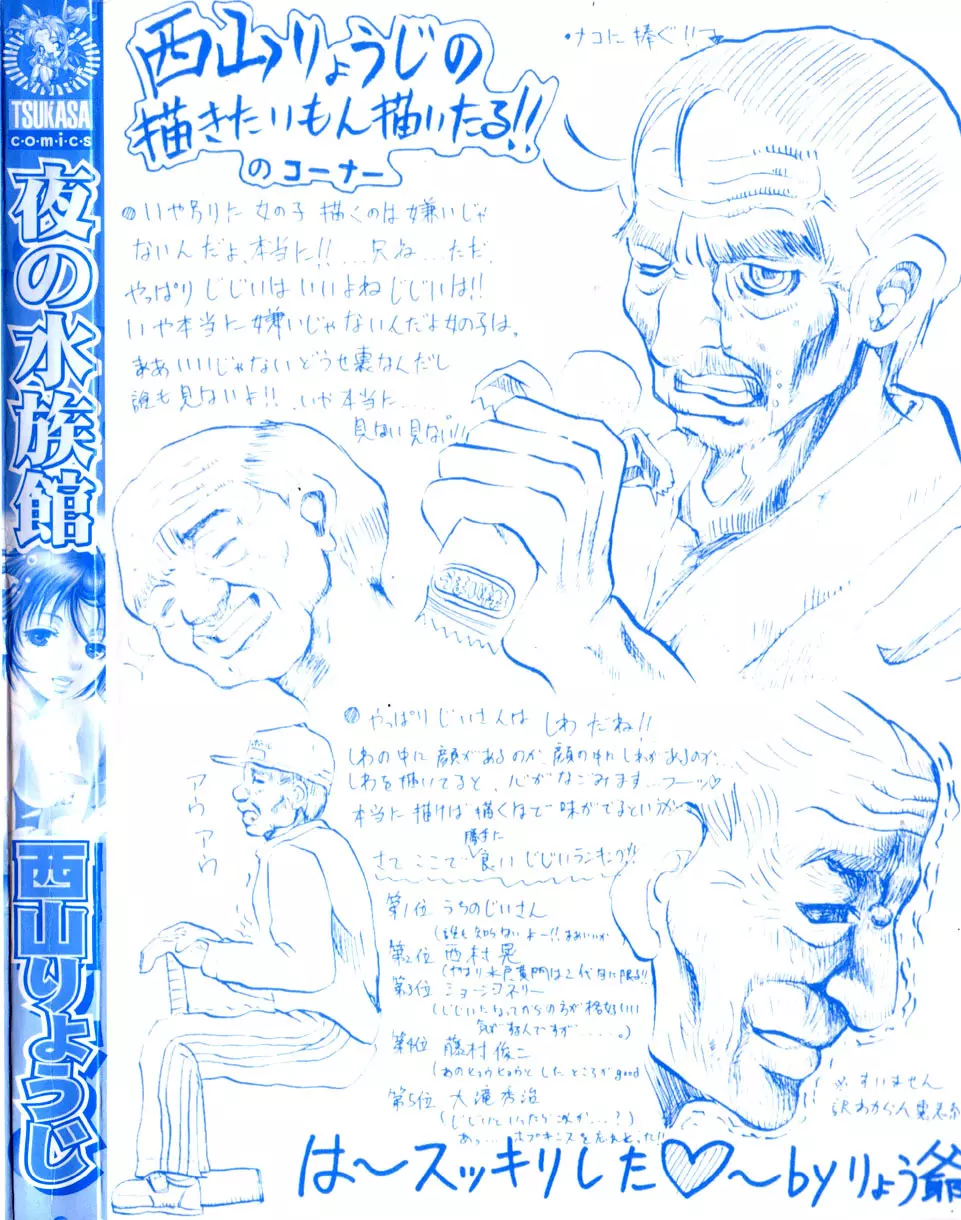 TSUKASA
comics
夜の水族館
西山りょうじ
西山りょうじの
描きたいもん描いたる!!
のコーナー
・ナコに捧ぐ!!
いや別に女の子描くのは嫌いじゃ
ないんだよ、本当に!!…只ね…ただ、
やっぱりじじいはいいよねじじいは!!
いや本当に嫌いじゃないんだよ女の子は、
まあいいじゃないどうせ裏なんだし
誰も見ないよ!!、いや本当に……
見ない見ない!!
やっぱりじいさんはしわだね!!
しわの中に顔があるのか、顔の中にしわがあるのか…
しわを描いてると、心がなごみます…フーッ♡
本当に描けば描くほど味がでるというか
勝手に
さてここで良いじじいランキング!!
アウアウ
第1位 うちのじいさん
(誰も知らないよー!!まあいいか)
第2位 西村晃
(やはり水戸黄門は2代目に限る!!
第3位 ショーンコネリー
(じじいになってからの方が格好いい
気がするんですが……。)
第4位 藤村俊二
(あのヒョウヒョウとしたところがgood
第5位 大滝秀治
(じじいといったらこの人が…?)
あっ…ホプキンスを忘れとった!!
※すいません
訳わからん裏表紙
は〜スッキリした♡〜byりょう爺